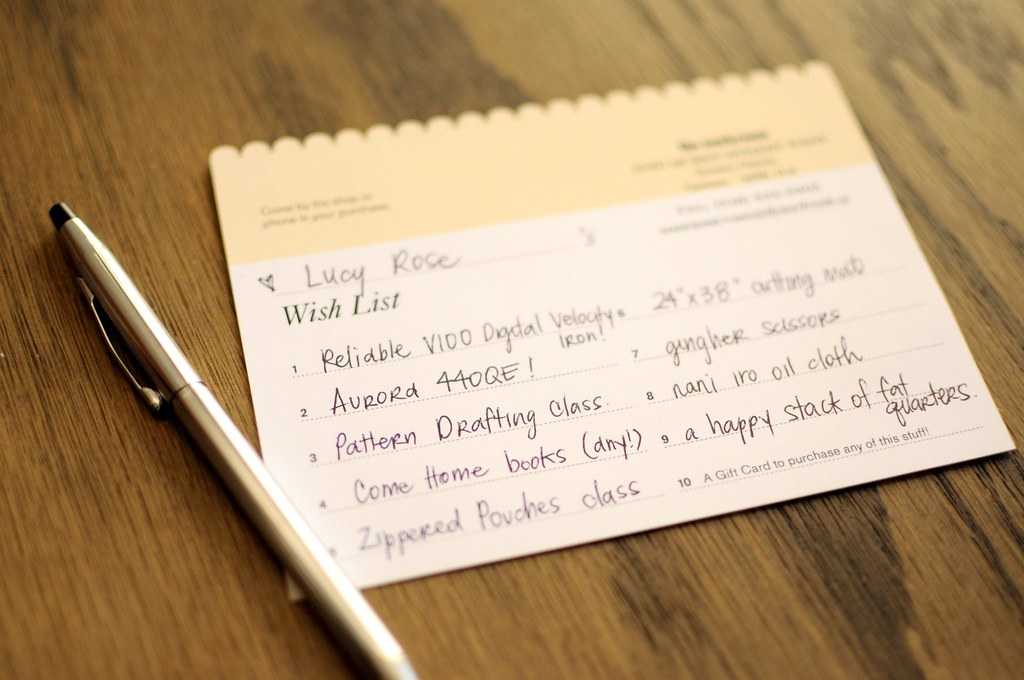 Come by the shop or
phone in your purchase.
Lucy Rose
Wish List
1 Reliable V100 Digital Velocity
Iron!
2 Aurora 440QE!
3 Pattern Drafting Class.
4 Come Home books (any!)
Zippered Pouches class
24"x38" cutting mat
7 gingher scissors
8 nani iro oil cloth
9 a happy stack of fat
quarters.
10 A Gift Card to purchase any of this stuff!